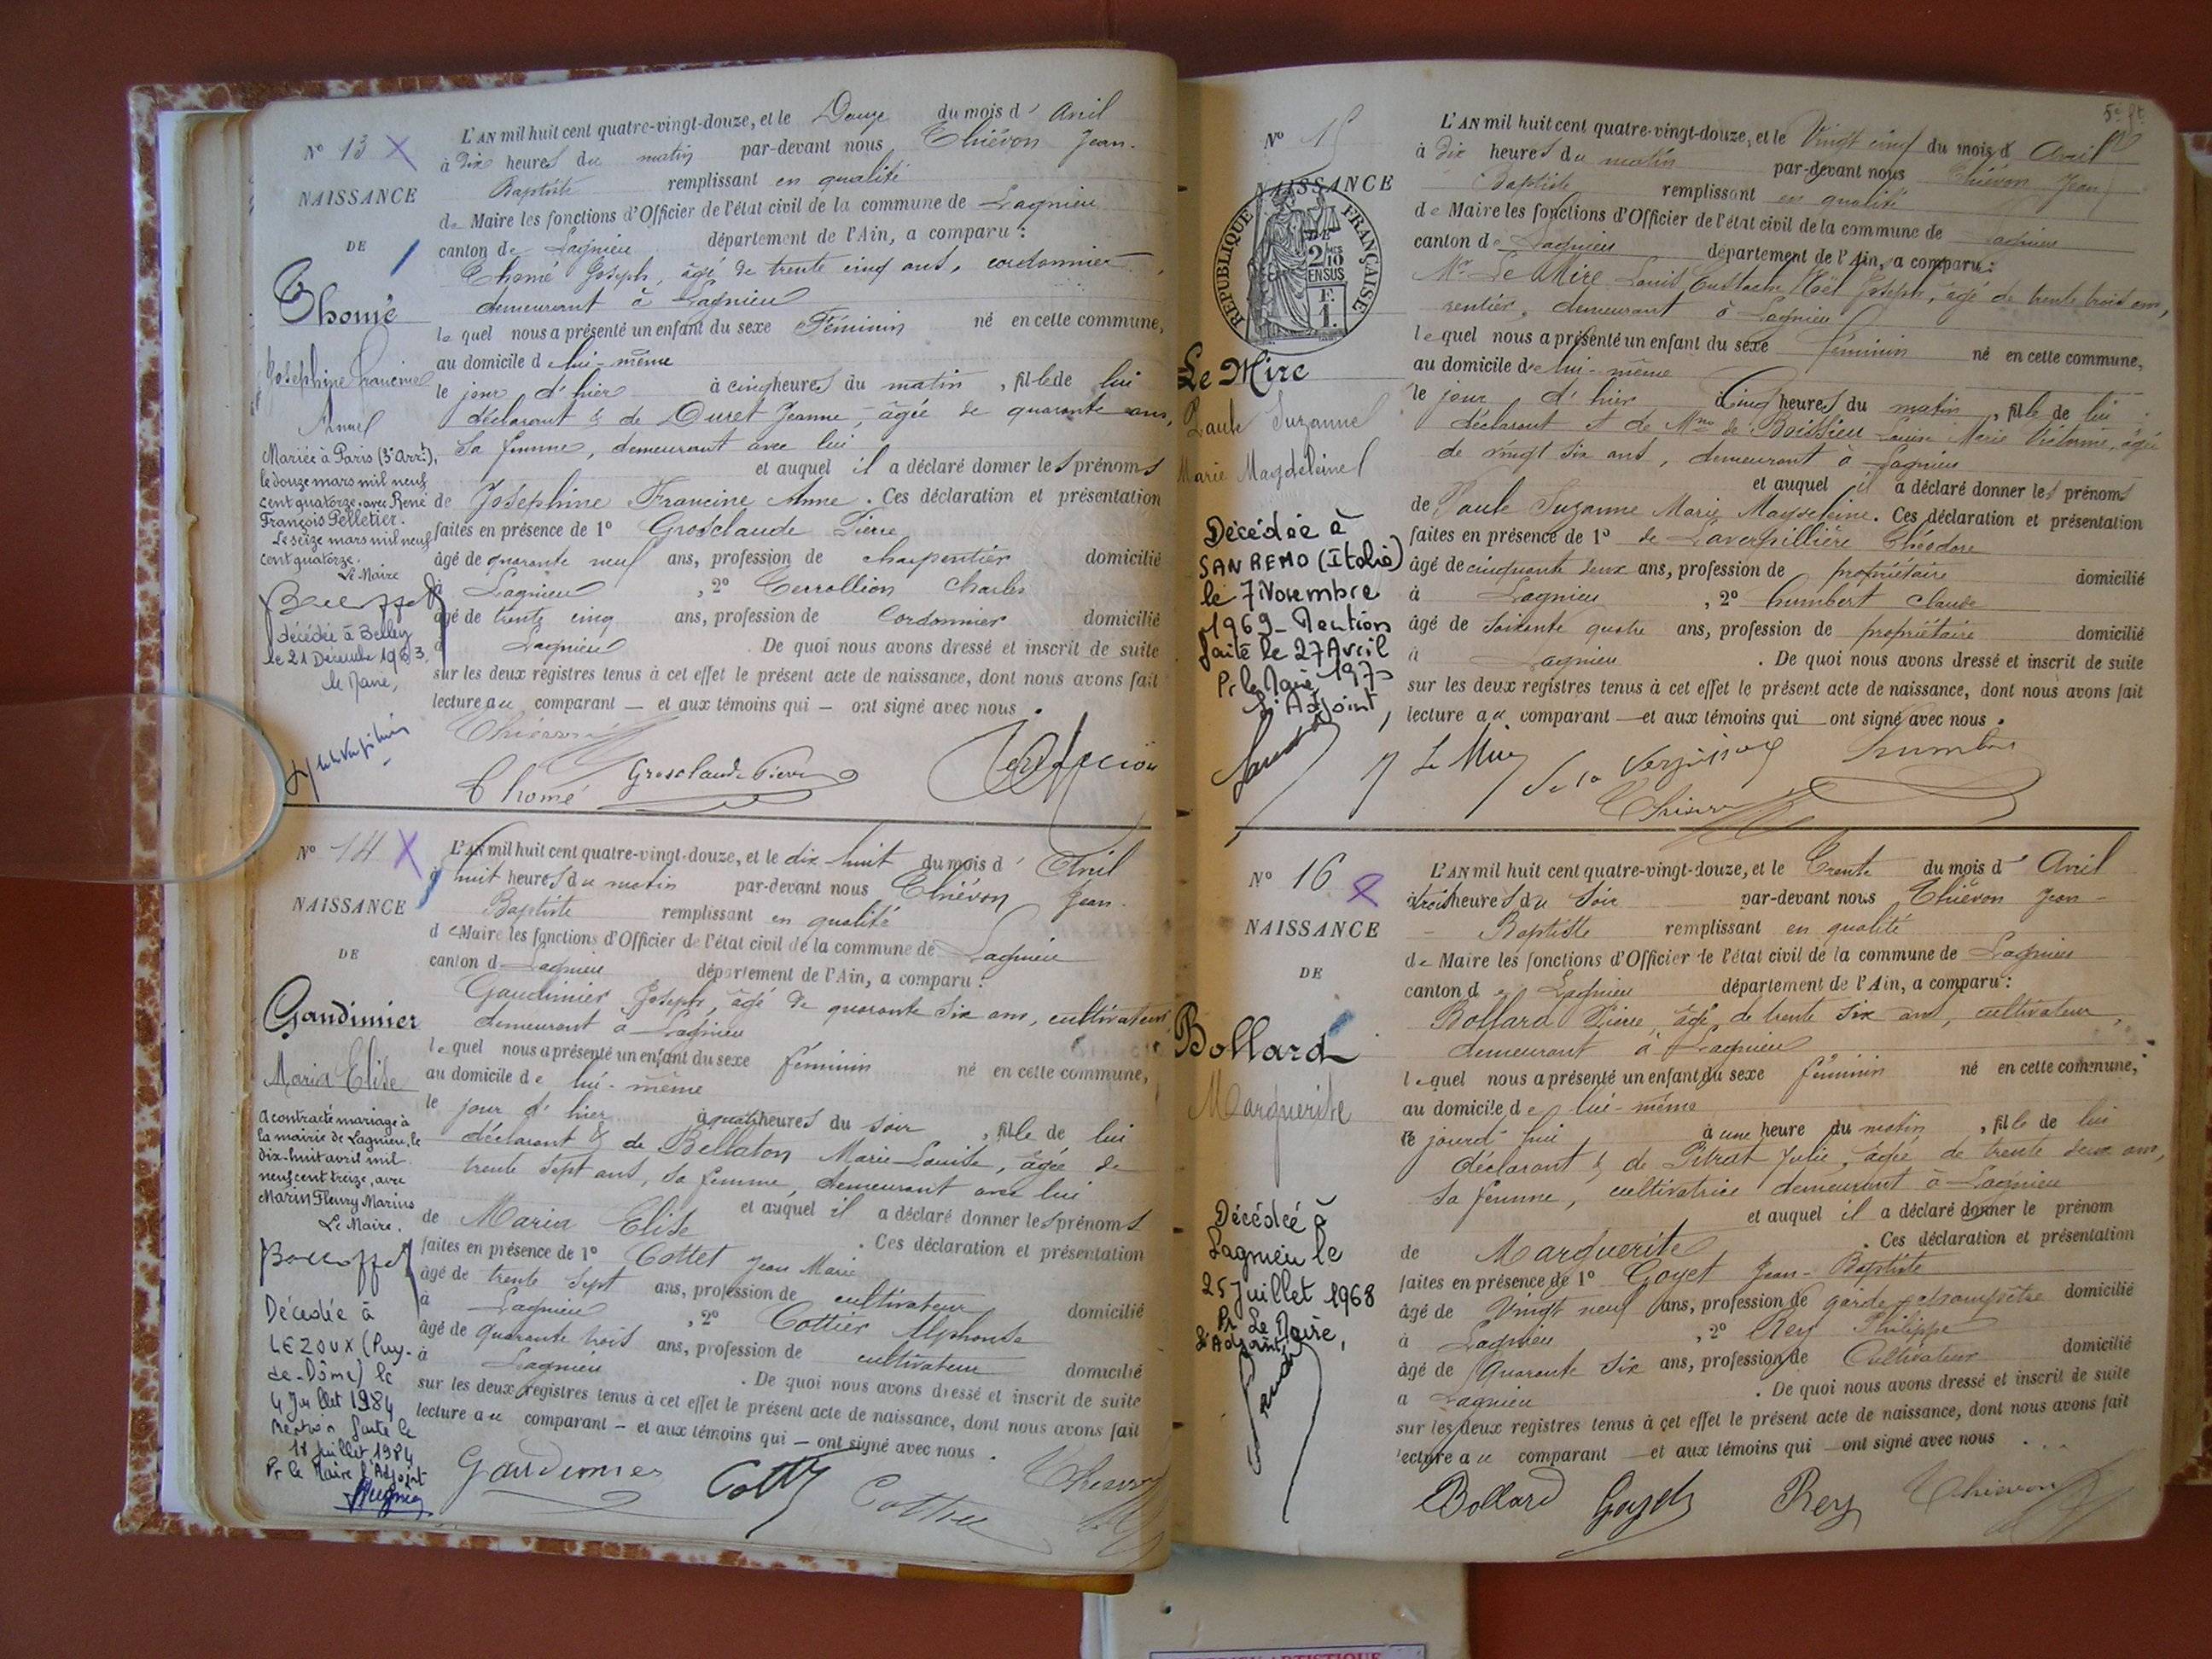 N° 13
NAISSANCE
DE
Thomé
Joséphine Francine
Anne
Mariée à Paris (3e Arrt),
le douze mars mil neuf
cent quatorze avec René
François Pelletier.
Le seize mars mil neuf
cent quatorze.
Le Maire
décédée à Belley
le 21 Décembre 1963.
le Maire,
L'AN mil huit cent quatre-vingt-douze, et le Douze du mois d' Avril
à dix heures du matin par-devant nous Thiévon Jean-
Baptiste remplissant en qualité
de Maire les fonctions d'Officier de l'état civil de la commune de Lagnieu
canton de Lagnieu département de l'Ain, a comparu :
Thomé Joseph, âgé de trente cinq ans, cordonnier,
demeurant à Lagnieu
lequel nous a présenté un enfant du sexe Féminin né en cette commune,
au domicile de lui-même
le jour d'hier à cinq heures du matin, fille de lui
déclarant & de Duret Jeanne, âgée de quarante ans,
sa femme, demeurant avec lui
et auquel il a déclaré donner les prénoms
de Joséphine Francine Anne. Ces déclaration et présentation
faites en présence de 1° Grosclaude Pierre
âgé de quarante neuf ans, profession de charpentier domicilié
à Lagnieu, 2° Terrollion Charles
âgé de trente cinq ans, profession de Cordonnier domicilié
à Lagnieu. De quoi nous avons dressé et inscrit de suite
sur les deux registres tenus à cet effet le présent acte de naissance, dont nous avons fait
lecture au comparant — et aux témoins qui — ont signé avec nous.
Thiévon
Thomé Grosclaude Pierre
N° 14
NAISSANCE
DE
Gaudimier
Maria Elise
A contracté mariage à
la mairie de Lagnieu, le
dix-huit avril mil
neuf cent treize, avec
Marin Fleury Marius
Le Maire.
Décédée à
LEZOUX (Puy-
de-Dôme) le
4 Juillet 1984
Mention faite le
18 Juillet 1984
Pr le Maire l'Adjoint
L'AN mil huit cent quatre-vingt-douze, et le dix-huit du mois d' Avril
à huit heures du matin par-devant nous Thiévon Jean-
Baptiste remplissant en qualité
de Maire les fonctions d'Officier de l'état civil de la commune de Lagnieu
canton d Lagnieu département de l'Ain, a comparu :
Gaudimier Joseph, âgé de quarante six ans, cultivateur
demeurant à Lagnieu
lequel nous a présenté un enfant du sexe féminin né en cette commune,
au domicile de lui-même
le jour d'hier à quatre heures du soir, fille de lui
déclarant & de Bellaton Marie Louise, âgée de
trente sept ans, sa femme, demeurant avec lui
et auquel il a déclaré donner les prénoms
de Maria Elise. Ces déclaration et présentation
faites en présence de 1° Cottet Jean Marie
âgé de trente sept ans, profession de cultivateur domicilié
à Lagnieu, 2° Cottier Alphonse
âgé de quarante trois ans, profession de cultivateur domicilié
à Lagnieu. De quoi nous avons dressé et inscrit de suite
sur les deux registres tenus à cet effet le présent acte de naissance, dont nous avons fait
lecture au comparant — et aux témoins qui — ont signé avec nous.
Gaudimier Cottet Cottier Thiévon
N° 15
NAISSANCE
RÉPUBLIQUE FRANÇAISE
2/10 EN SUS
F. 1.
Le Mire
Paule Suzanne
Marie Magdeleine
Décédée à
SAN REMO (Italie)
le 7 Novembre
1969 - Mention
faite le 27 Avril
Pr le Maire
L'Adjoint,
L'AN mil huit cent quatre-vingt-douze, et le Vingt cinq du mois d Avril
à dix heures du matin par-devant nous Thiévon Jean
Baptiste remplissant en qualité
de Maire les fonctions d'Officier de l'état civil de la commune de Lagnieu
canton de Lagnieu département de l'Ain, a comparu :
Mr Le Mire Louis Eustache Noël Joseph, âgé de trente trois ans,
rentier, demeurant à Lagnieu
lequel nous a présenté un enfant du sexe féminin né en cette commune,
au domicile de lui-même
le jour d'hier à cinq heures du matin, fille de lui
déclarant et de Mme de Boissieu Louise Marie Victorine, âgée
de vingt six ans, demeurant à Lagnieu
et auquel il a déclaré donner les prénoms
de Paule Suzanne Marie Magdeleine. Ces déclaration et présentation
faites en présence de 1° de Laverpillière Théodore
âgé de cinquante deux ans, profession de propriétaire domicilié
à Lagnieu, 2° humbert Claude
âgé de soixante quatre ans, profession de propriétaire domicilié
à Lagnieu. De quoi nous avons dressé et inscrit de suite
sur les deux registres tenus à cet effet le présent acte de naissance, dont nous avons fait
lecture au comparant — et aux témoins qui — ont signé avec nous.
Le Mire
Thiévon
N° 16
NAISSANCE
DE
Bollard
Marguerite
Décédée à
Lagnieu le
25 Juillet 1968
Pr Le Maire,
L'Adjoint,
L'AN mil huit cent quatre-vingt-douze, et le Trente du mois d' Avril
à trois heures du soir par-devant nous Thiévon Jean-
Baptiste remplissant en qualité
de Maire les fonctions d'Officier de l'état civil de la commune de Lagnieu
canton de Lagnieu département de l'Ain, a comparu :
Bollard Pierre, âgé de trente six ans, cultivateur,
demeurant à Lagnieu
lequel nous a présenté un enfant du sexe féminin né en cette commune,
au domicile de lui-même
ce jourd'hui à une heure du matin, fille de lui
déclarant & de Pitrat Julie, âgée de trente deux ans,
sa femme, cultivatrice demeurant à Lagnieu
et auquel il a déclaré donner le prénom
de Marguerite. Ces déclaration et présentation
faites en présence de 1° Goyet Jean-Baptiste
âgé de Vingt neuf ans, profession de garde champêtre domicilié
à Lagnieu, 2° Rey Philippe
âgé de Quarante six ans, profession de Cultivateur domicilié
a Lagnieu. De quoi nous avons dressé et inscrit de suite
sur les deux registres tenus à cet effet le présent acte de naissance, dont nous avons fait
lecture au comparant — et aux témoins qui — ont signé avec nous
Bollard Goyet Rey Thiévon